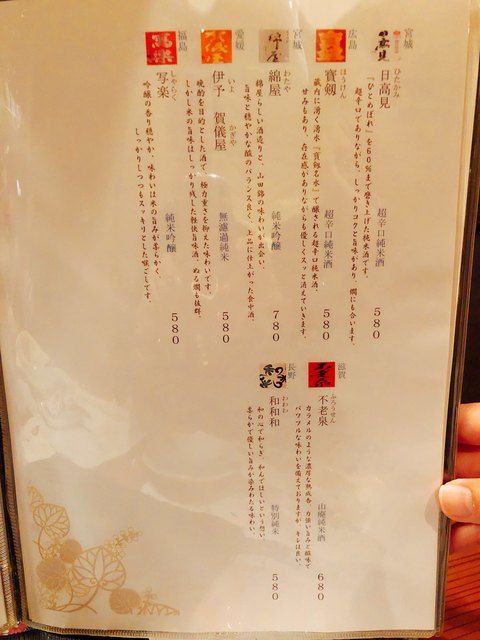 宮城
ひたかみ
日高見
超辛口純米酒
580
『ひとめぼれ』を60%まで磨き上げた純米酒です。
超辛口でありながら、しっかりコクと旨味があり、燗にも合います。
広島
ほうけん
寳剱
超辛口純米酒
580
蔵内に湧く湧水『寳剱名水』で醸される超辛口純米酒。
甘みもあり、存在感がありながらも優しくスッと消えていきます。
宮城
わたや
綿屋
純米吟醸
780
綿屋らしい酒造りと、山田錦の味わいが出会い、
旨味と穏やかな酸のバランス良く、上品に仕上がった食中酒。
愛媛
いよ かぎや
伊予 賀儀屋
無濾過純米
580
晩酌を目的とした酒で、極力重さを抑えた味わいです。
しかし米の旨味はしっかり残した軽快旨味酒。ぬる燗も抜群。
福島
しゃらく
写楽
純米吟醸
580
吟醸の香り穏やか、味わいは米の旨みが柔らかく、
しっかりしつつもスッキリとした喉ごしです。
滋賀
ふろうせん
不老泉
山廃純米酒
680
カラメルのような濃厚な熟成香、力強い旨みと酸味で
パワフルな味わいを備えておりますが、キレは良い。
長野
わわわ
和和和
特別純米
580
和の心で和らぎ、和んでほしいという想い。
柔らかで優しい旨みが染みわたる味わい。